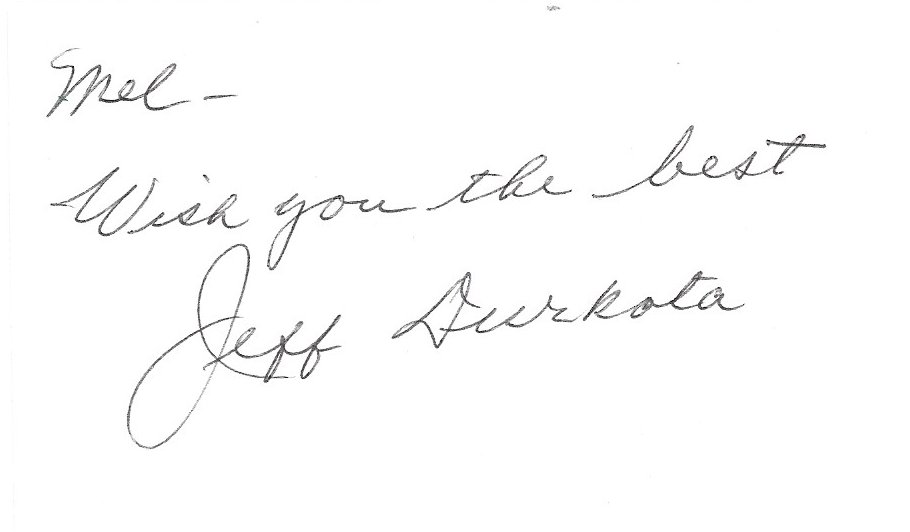 Mel -
Wish you the best
Jeff Durkota